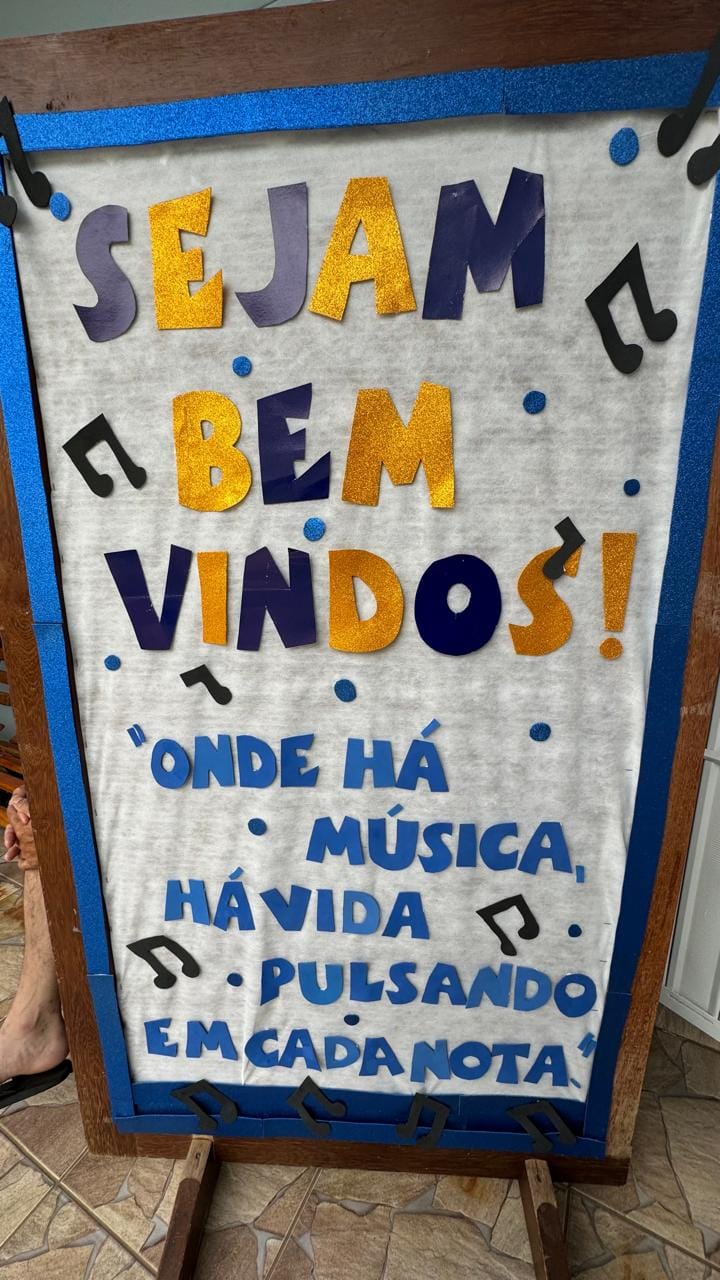 SEJAM
BEM
VINDOS!
"ONDE HÁ
MÚSICA,
HÁ VIDA
PULSANDO
EM CADA NOTA."